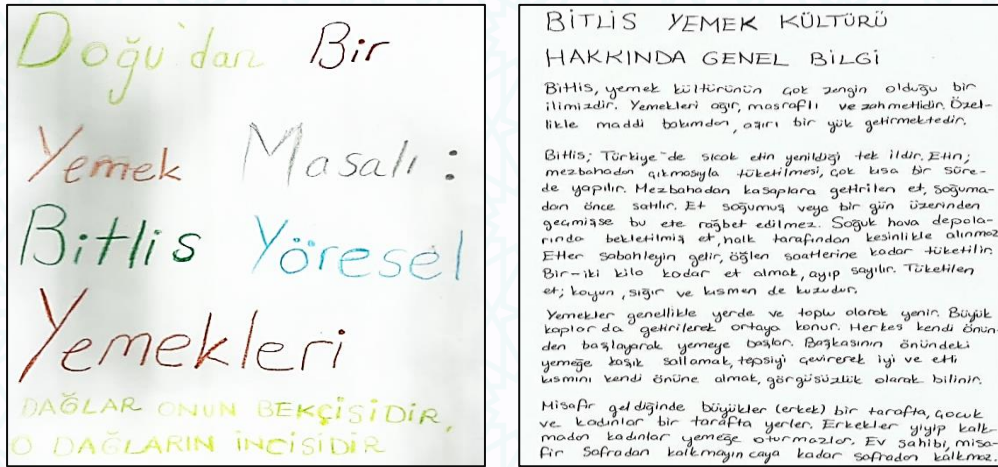 Doğu'dan Bir
Yemek Masalı:
Bitlis Yöresel
Yemekleri
DAĞLAR ONUN BEKÇİSİDİR,
O DAĞLARIN İNCİSİDİR
BİTLİS YEMEK KÜLTÜRÜ
HAKKINDA GENEL BİLGİ
Bitlis, yemek kültürünün çok zengin olduğu bir
ilimizdir. Yemekleri ağır, masraflı ve zahmetlidir. Özel-
likle maddi bakımdan, aşırı bir yük getirmektedir.
Bitlis; Türkiye'de sıcak etin yenildiği tek ildir. Etin;
mezbahadan çıkmasıyla tüketilmesi, çok kısa bir süre-
de yapılır. Mezbahadan kasaplara getirilen et, soğuma-
dan önce satılır. Et soğumuş veya bir gün üzerinden
geçmişse bu ete rağbet edilmez. Soğuk hava depola-
rında bekletilmiş et, halk tarafından kesinlikle alınmaz.
Etler sabahleyin gelir, öğlen saatlerine kadar tüketilir.
Bir-iki kilo kadar et almak, ayıp sayılır. Tüketilen
et; koyun, sığır ve kısmen de kuzudur.
Yemekler genellikle yerde ve toplu olarak yenir. Büyük
kaplar da getirilerek ortaya konur. Herkes kendi önün-
den başlayarak yemeye başlar. Başkasının önündeki
yemeğe kaşık sallamak, tepsiyi çevirerek iyi ve etli
kısmını kendi önüne almak, görgüsüzlük olarak bilinir.
Misafir geldiğinde büyükler (erkek) bir tarafta, çocuk
ve kadınlar bir tarafta yerler. Erkekler yiyip kalk-
madan kadınlar yemeğe oturmazlar. Ev sahibi, misa-
fir sofradan kalkmayıncaya kadar sofradan kalkmaz.